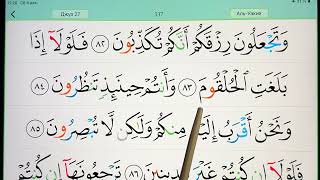 Джуз 27 537 Аль-Вакиа
وَتَجْعَلُونَ رِزْقَكُمْ أَنَّكُمْ تُكَذِّبُونَ ٨٢ فَلَوْلَآ إِذَا
بَلَغَتِ ٱلْحُلْقُومَ ٨٣ وَأَنتُمْ حِينَئِذٍ تَنظُرُونَ ٨٤
وَنَحْنُ أَقْرَبُ إِلَيْهِ مِنكُمْ وَلَٰكِن لَّا تُبْصِرُونَ ٨٥
فَلَوْلَآ إِن كُنتُمْ غَيْرَ مَدِينِينَ ٨٦ تَرْجِعُونَهَآ إِن كُنتُمْ